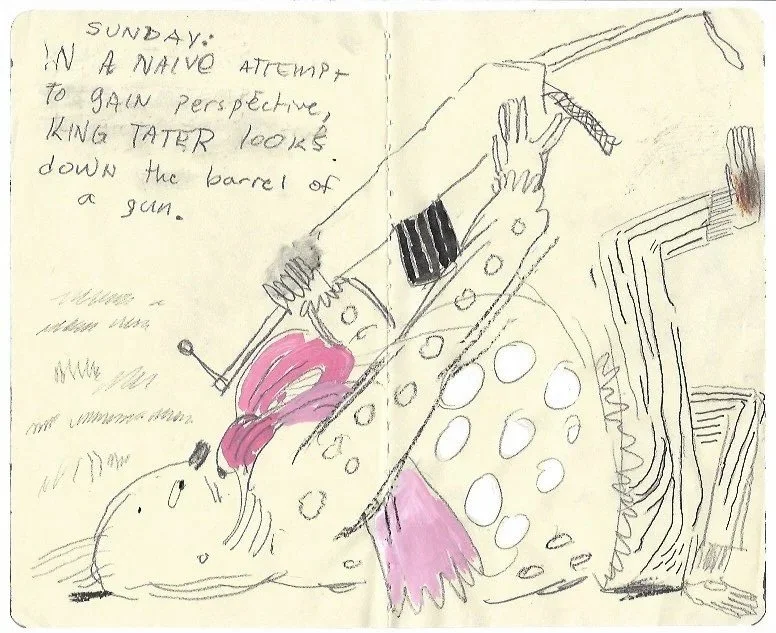 SUNDAY:
IN A NAIVE ATTEMPT
TO GAIN perspective,
KING TATER looks
down the barrel of
a gun.